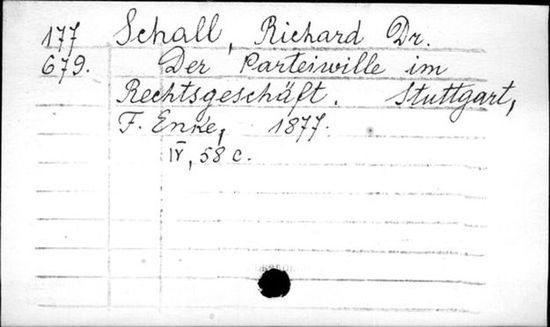 177 Schall, Richard Dr.
679. Der Parteiwille im
Rechtsgeschäft. Stuttgart,
F. Enke, 1877.
IV, 58 c.